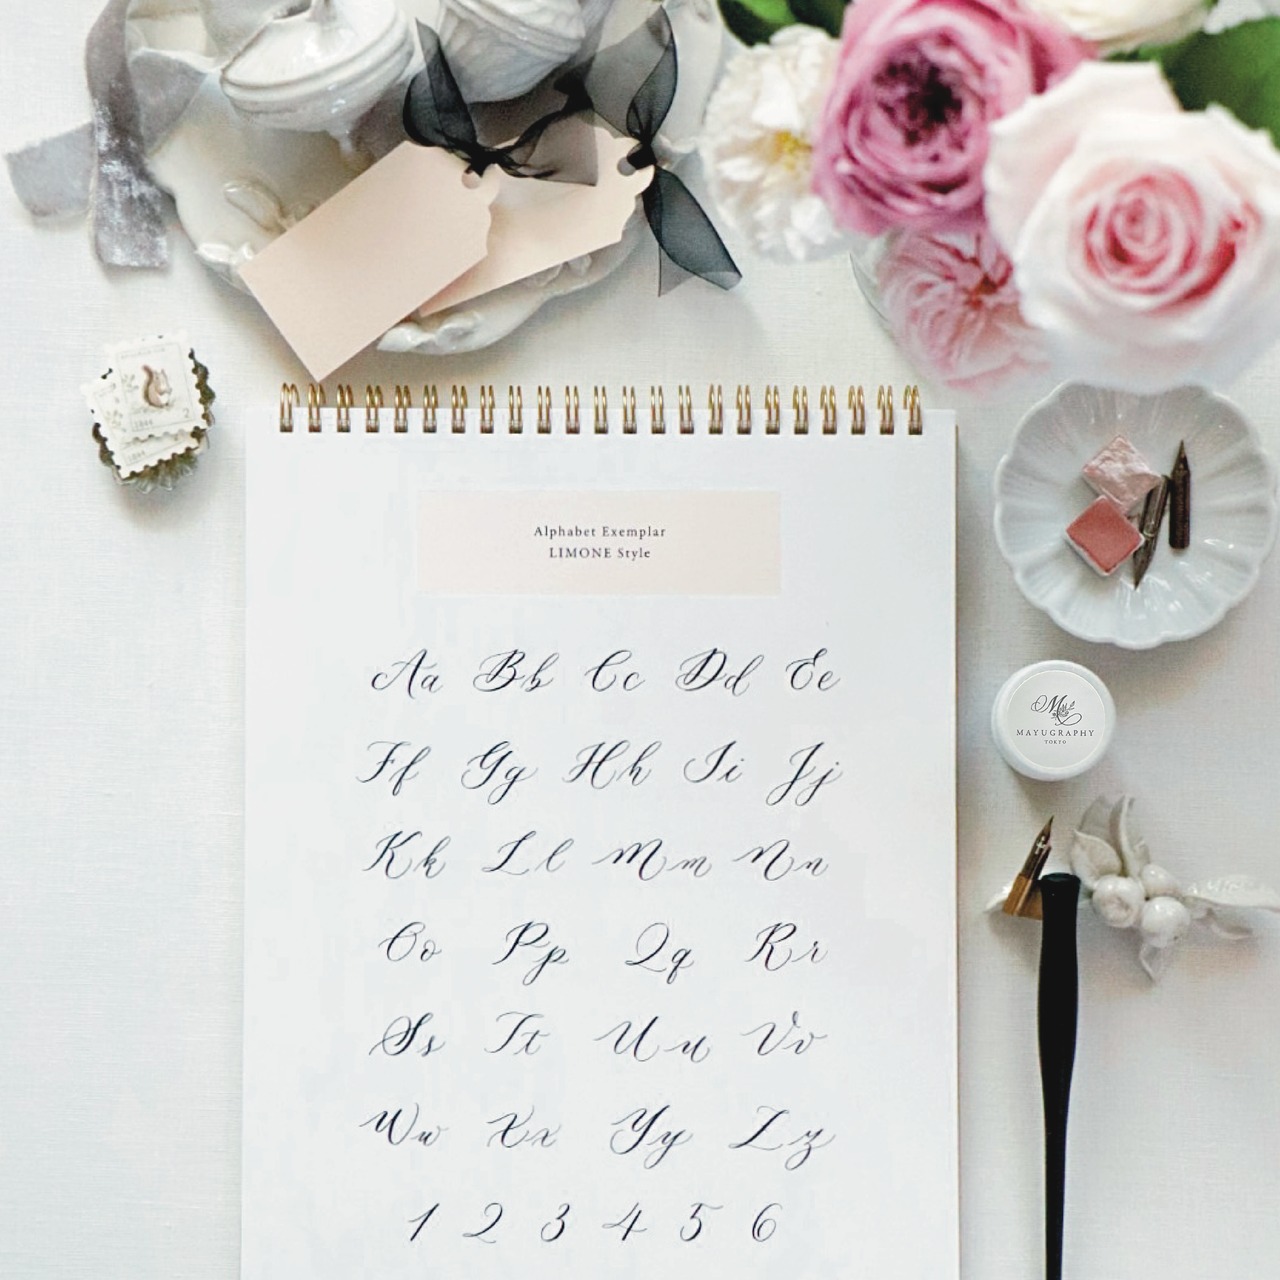 1844
2
1844
Alphabet Exemplar
LIMONE Style
Aa Bb Cc Dd Ee
Ff Gg Hh Ii Jj
Kk Ll Mm Nn
Oo Pp Qq Rr
Ss Tt Uu Vv
Ww Xx Yy Zz
1 2 3 4 5 6
M
MAYUGRAPHY
TOKYO